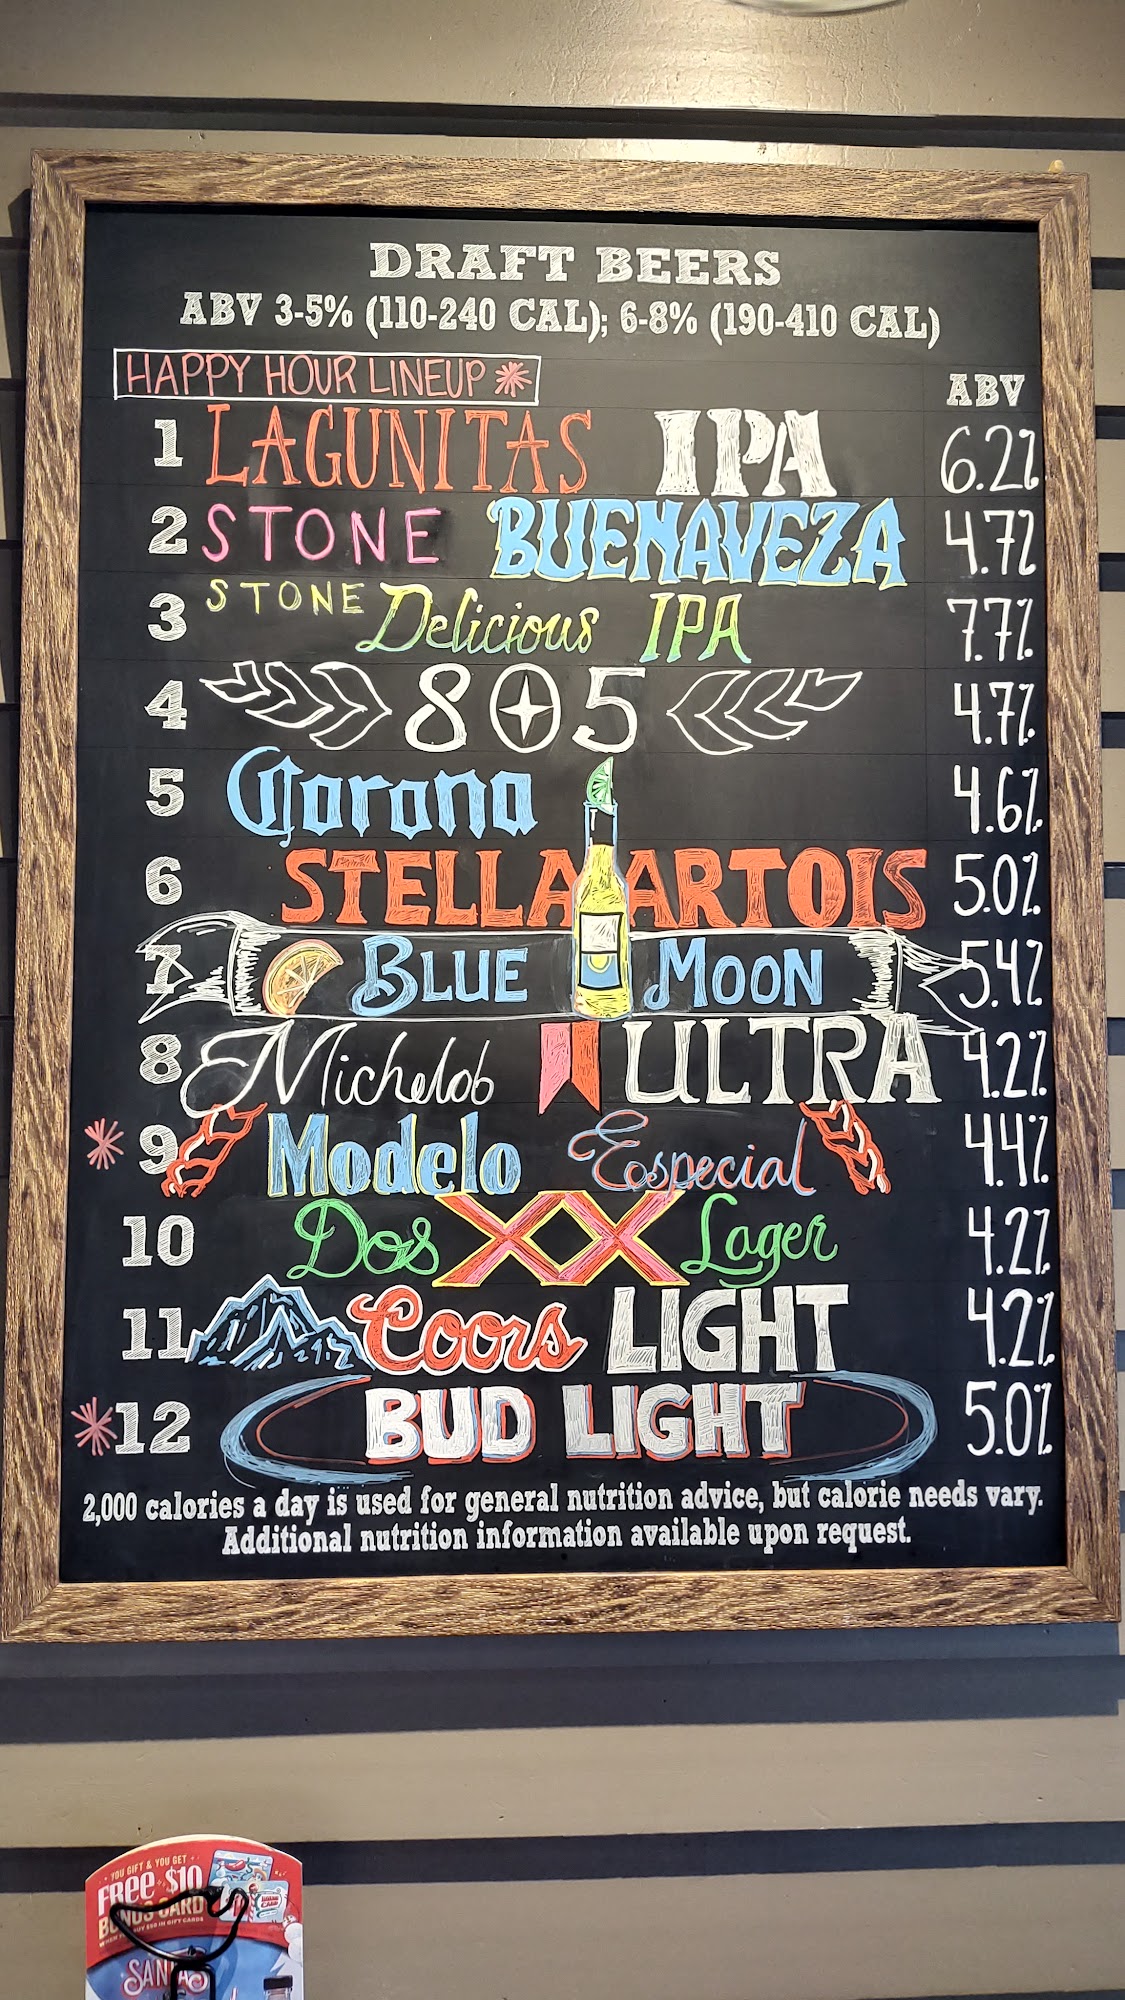 DRAFT BEERS
ABV 3-5% (110-240 CAL); 6-8% (190-410 CAL)
HAPPY HOUR LINEUP *
ABV
1 LAGUNITAS IPA 6.2%
2 STONE BUENAVEZA 4.7%
3 STONE Delicious IPA 7.7%
4 805 4.7%
5 Corona 4.6%
6 STELLA ARTOIS 5.0%
7 BLUE MOON 5.4%
8 Michelob ULTRA 4.2%
* 9 Modelo Especial 4.4%
10 Dos XX Lager 4.2%
11 Coors LIGHT 4.2%
* 12 BUD LIGHT 5.0%
2,000 calories a day is used for general nutrition advice, but calorie needs vary.
Additional nutrition information available upon request.
YOU GIFT & YOU GET
FREE $10
BONUS CARD
WHEN YOU BUY $50 IN GIFT CARDS
SANTA'S